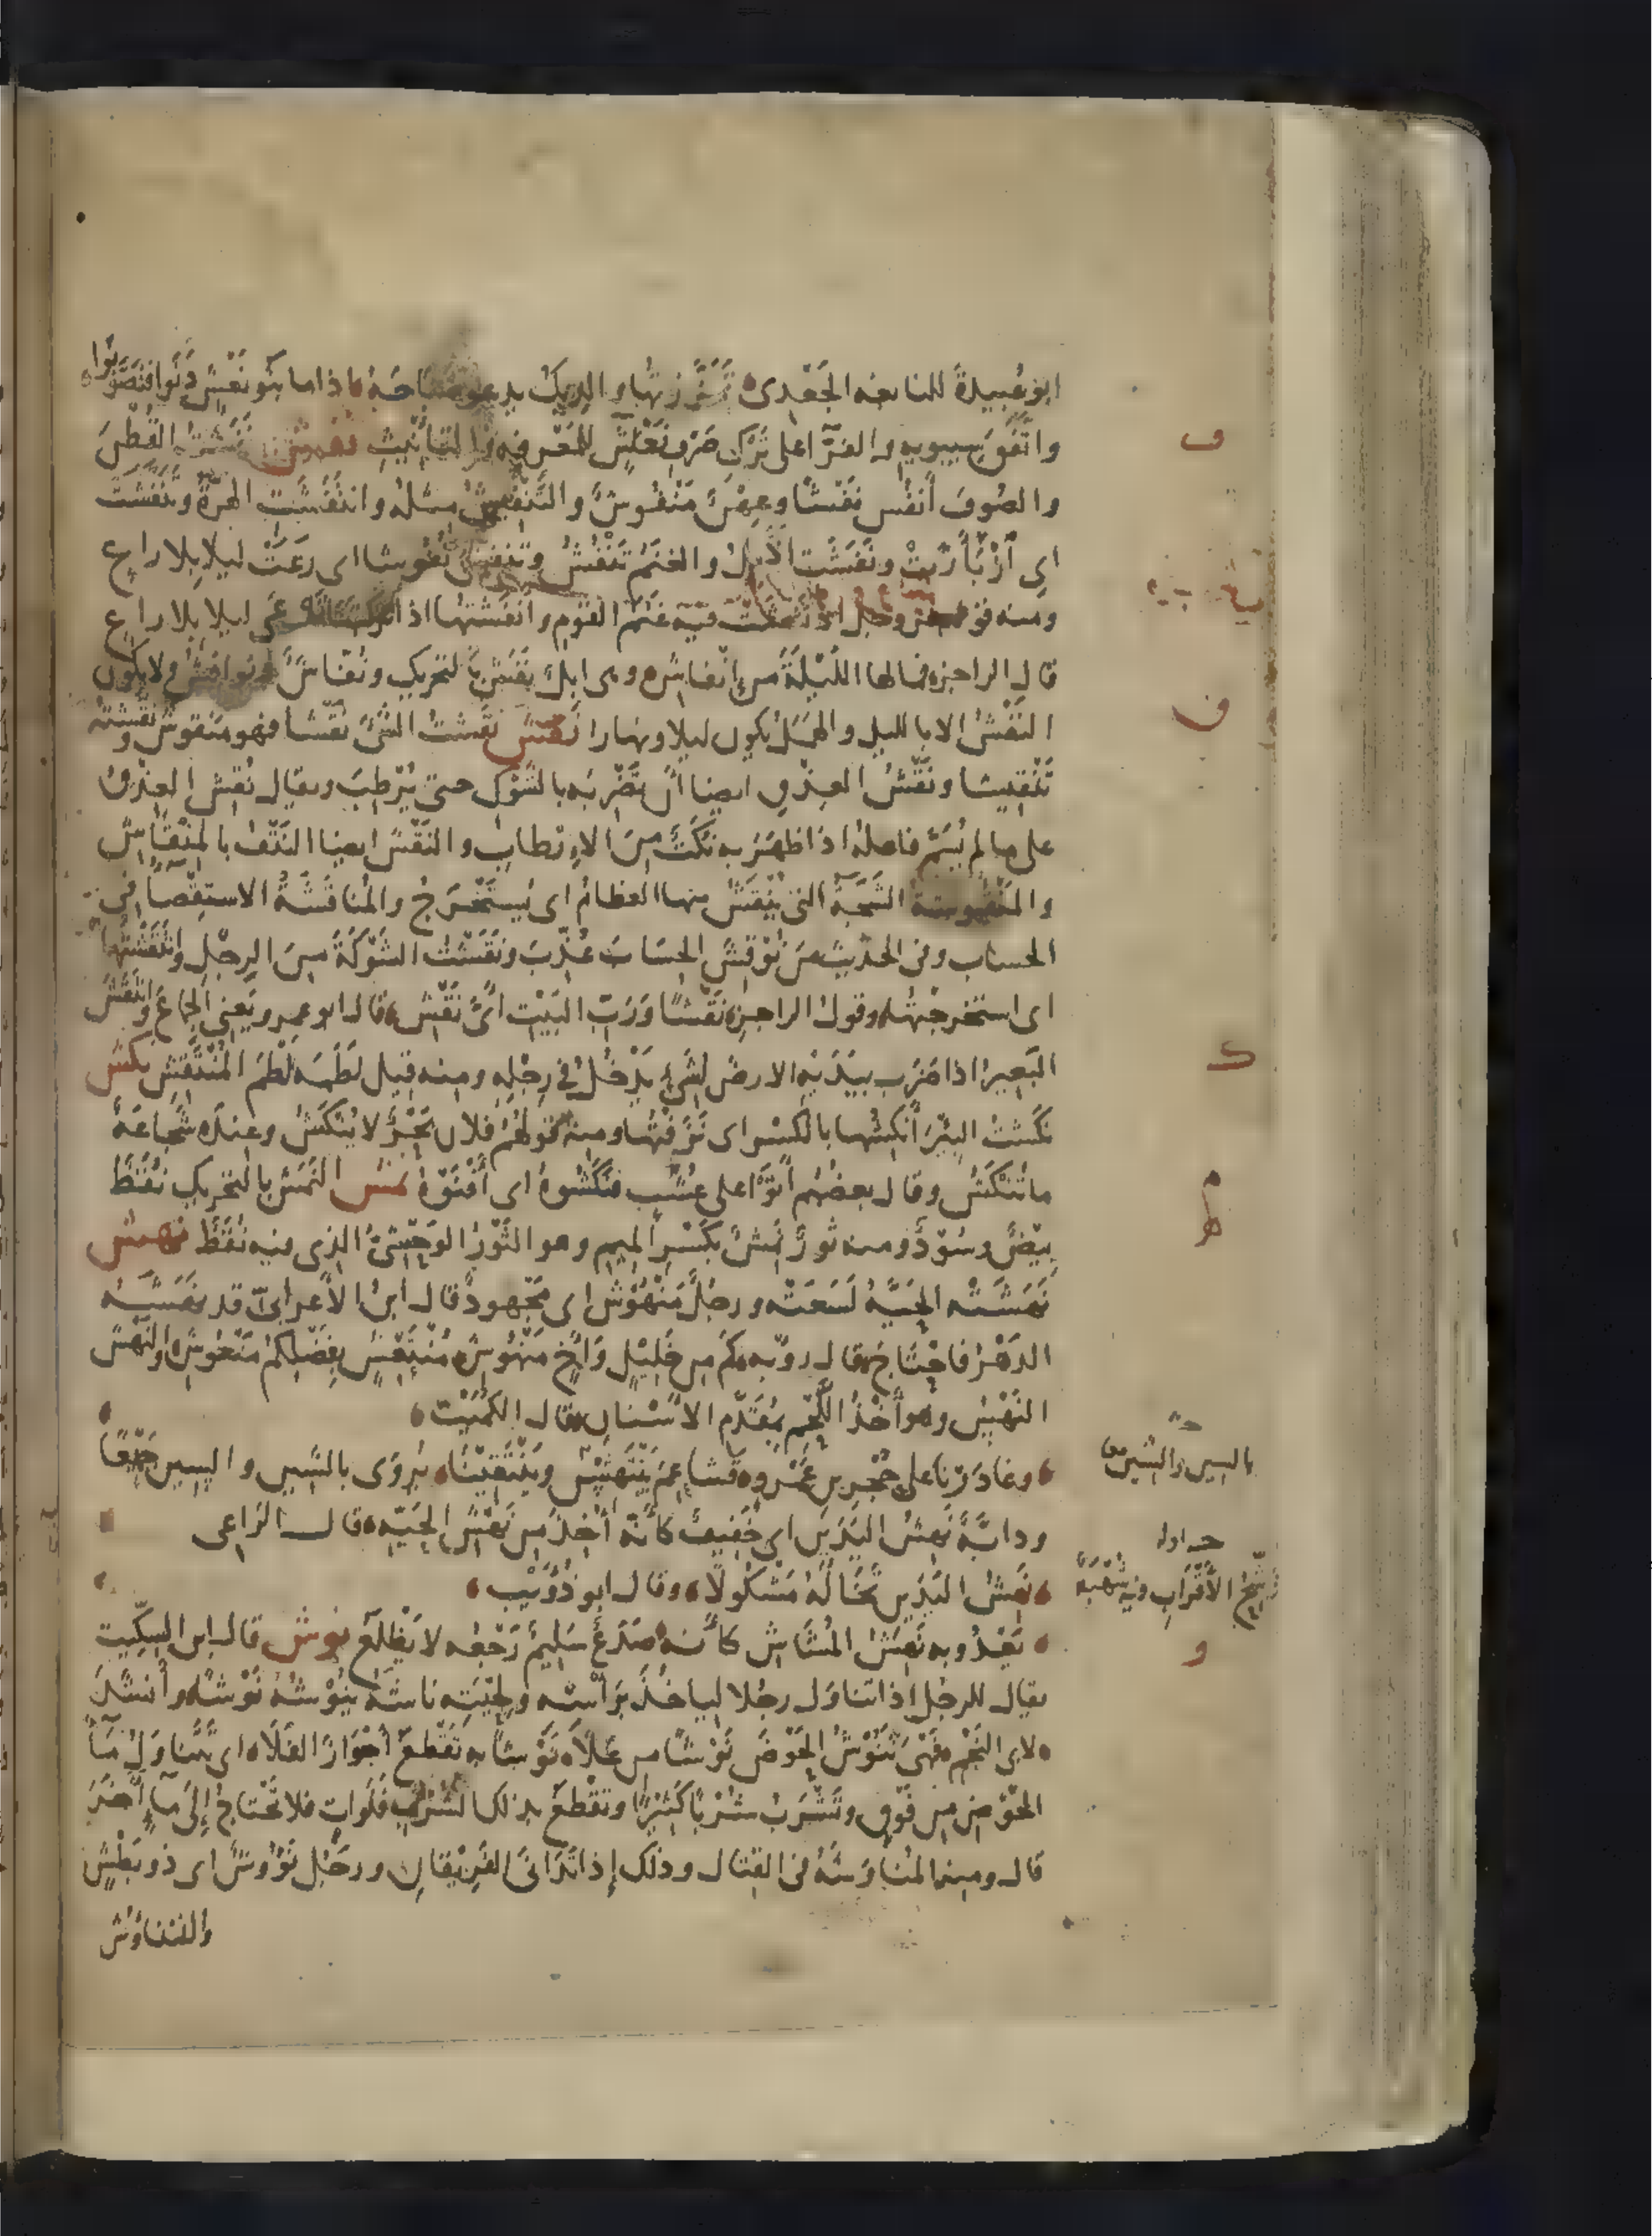 ابو عُبيدةَ للنابغه الجَعْدى تَمَزَّزتُها والديكُ يدعو صَبَاحَهُ اذا ما بنو نَعْشٍ دَنَوا فتصَوَّبُوا
واتّفق سيبويه والفرّا على تَرْك صَرْفِ نَعْش للمَعْرفه والتانيثِ نفش نَفَشْتُ القُطنَ
والصُوفَ أنفُش نَفْشًا وعِهْنٌ مَنْفُوشٌ والتَّنْفِيشُ مثله وانتَفَشَتِ الهِرَّةُ وتَنَفَّشَتْ
اى ازْبَأَرَّتْ ونَفَشَت الاِبِلُ والغنَمُ تَنْفُشُ وتَنْفِشُ نُفُوشا اى رَعَتْ ليلا بلا راع
ومنه قوله عز وجل اذ نَفَشَتْ فيه غَنَمُ القوم وانفَشتُها اذا تركتها ترعى ليلا بلا راع
قال الراجز فما لها اللَّيْلَةَ من انْفاشِ وهى ابلٌ نَفَشٌ بالتحريك ونُفّاشٌ ونوافشُ ولا يكون
النَفَشُ الا بالليل والهَمَلُ يكون ليلا ونهارا نقش نقَشتُ الشئَ نَقْشا فهو منقوش ونقّشتُه
تَنْقِيشا ونَقْشُ العِذْقِ ايضا أَنْ تَضْرِبَه بالشَوْكِ حتى يُرْطِبَ ويقال نُقِشَ العِذْقُ
على ما لم يُسَمَّ فاعله اذا ظهَرَ به نُكَتٌ مِنَ الاِرْطابِ والنَقْشُ ايضا النَتْفُ بالمِنْقاشِ
والمَنْقُوشَةُ الشَجَّةُ التى يُنْقَشُ منها العظامُ اى يُستَخْرَجُ والمُناقَشَةُ الاستِقْصَآ فى
الحساب وفى الحديث من نُوقِشَ الحسَابَ عُذِّبَ ونَقَشْتُ الشَوْكَةَ مِنَ الرِجْلِ وانتَقَشْتُها
اى استخرجْتُها وقول الراجز نَقْشًا ورَبِّ البَيْتِ اىَّ نَقْشِ قال ابو عمرو يَعنى الجِماعَ وانتَقَشَ
البَعيرُ اذا ضَرَبَ بيَدَيْهِ الارضَ لشئٍ يَدْخُلُ فى رِجْلِهِ ومنه قيل لَطَمَه لَطْمَ المُنْتَقِشِ نكش
نكَشتُ البِئْرَ أنكِشُها بالكسر اى نَزَفْتُها ومنه قولهُمْ فلان بَحْرٌ لا يُنْكَشُ وعنده شَجاعَةٌ
ما تُنْكَشُ وقال بعضُهم أَتَوْا على عُشْبٍ فنَكَشُوهُ اى أَفْنَوْهُ نمش النَمَشُ بالتحريك نُقَطٌ
بِيْضٌ وسُوْدٌ ومنه ثَوْرٌ نَمِشٌ بكَسْرِ الميم وهو الثَوْرُ الوَحْشىُّ الذى فيه نُقَطٌ نهش
نَهَشَتْه الحَيَّةُ لَسَعَتْه ورجلٌ مَنْهُوْش اى مَجْهودٌ قال ابنُ الاعرابىّ قد نَهَشَهُ
الدَهْرُ فاحْتَاجَ قال روّبه كَمْ من خَلِيْلٍ وَأخٍ مَنْهُوْشِ مُنْتَعِشٍ بفَضْلِكُمْ مَنْعُوشِ والنَهْشُ
النَهْسُ وهو أَخْذُ اللَّحْمِ بمُقَدَّمِ الاَسْنان قال الكُمَيْت
وغادَرْنا على حُجْرِ بن عَمْرٍو قَشَاعِمَ يَنْتَهِشْنَ ويَنْتَقِيْنَا يُرْوَى بالشين والسين جميعًا
ودابَّةٌ نَهِشُ اليَدَيْنِ اى خَفيفٌ كأنّه أُخِذَ من نَهْشِ الحَيّه قال الراعى
نَهِشَ اليَدَيْنِ تَخَالُهُ مَشْكُولًا وقال ابو ذُؤَيْب
يَعْدُو به نَهِشُ المُشَاشِ كأنه صَدَعٌ سَلِيمٌ رَجْعُه لا يَظْلَعُ نوش قال ابن السِكّيت
يقال للرجُل اذا تناوَل رجُلا ليأخُذَ برَأسْه ولحْيَتِه ناشَهُ يَنُوْشُهُ نَوْشًا وأنشدَ
لابى النَجْمِ فَهْىَ تَنُوْشُ الحَوْضَ نَوْشًا من عَلاَ نَوْشًا به تَقْطَعُ اجْوَازَ الفَلَا اى تَتَناوَلُ مَآ
الحَوْضِ من فَوْق وتَشْرَبُ شُرْبًا كَثِيْرًا وتقْطَعُ بذلك الشُرْبِ فَلَواتٍ فلا تَحْتاجُ إِلَى مَآءٍ آخَرَ
قال ومنه المُناوَشَةُ فى القِتال وذلك إِذا تَدَانَى الفَرِيْقانِ ورجُل نَؤُوْشٌ اى ذو بَطْشٍ
والتناوُش
ف
ف
ك
م
ه
بالسين والشين معا
و